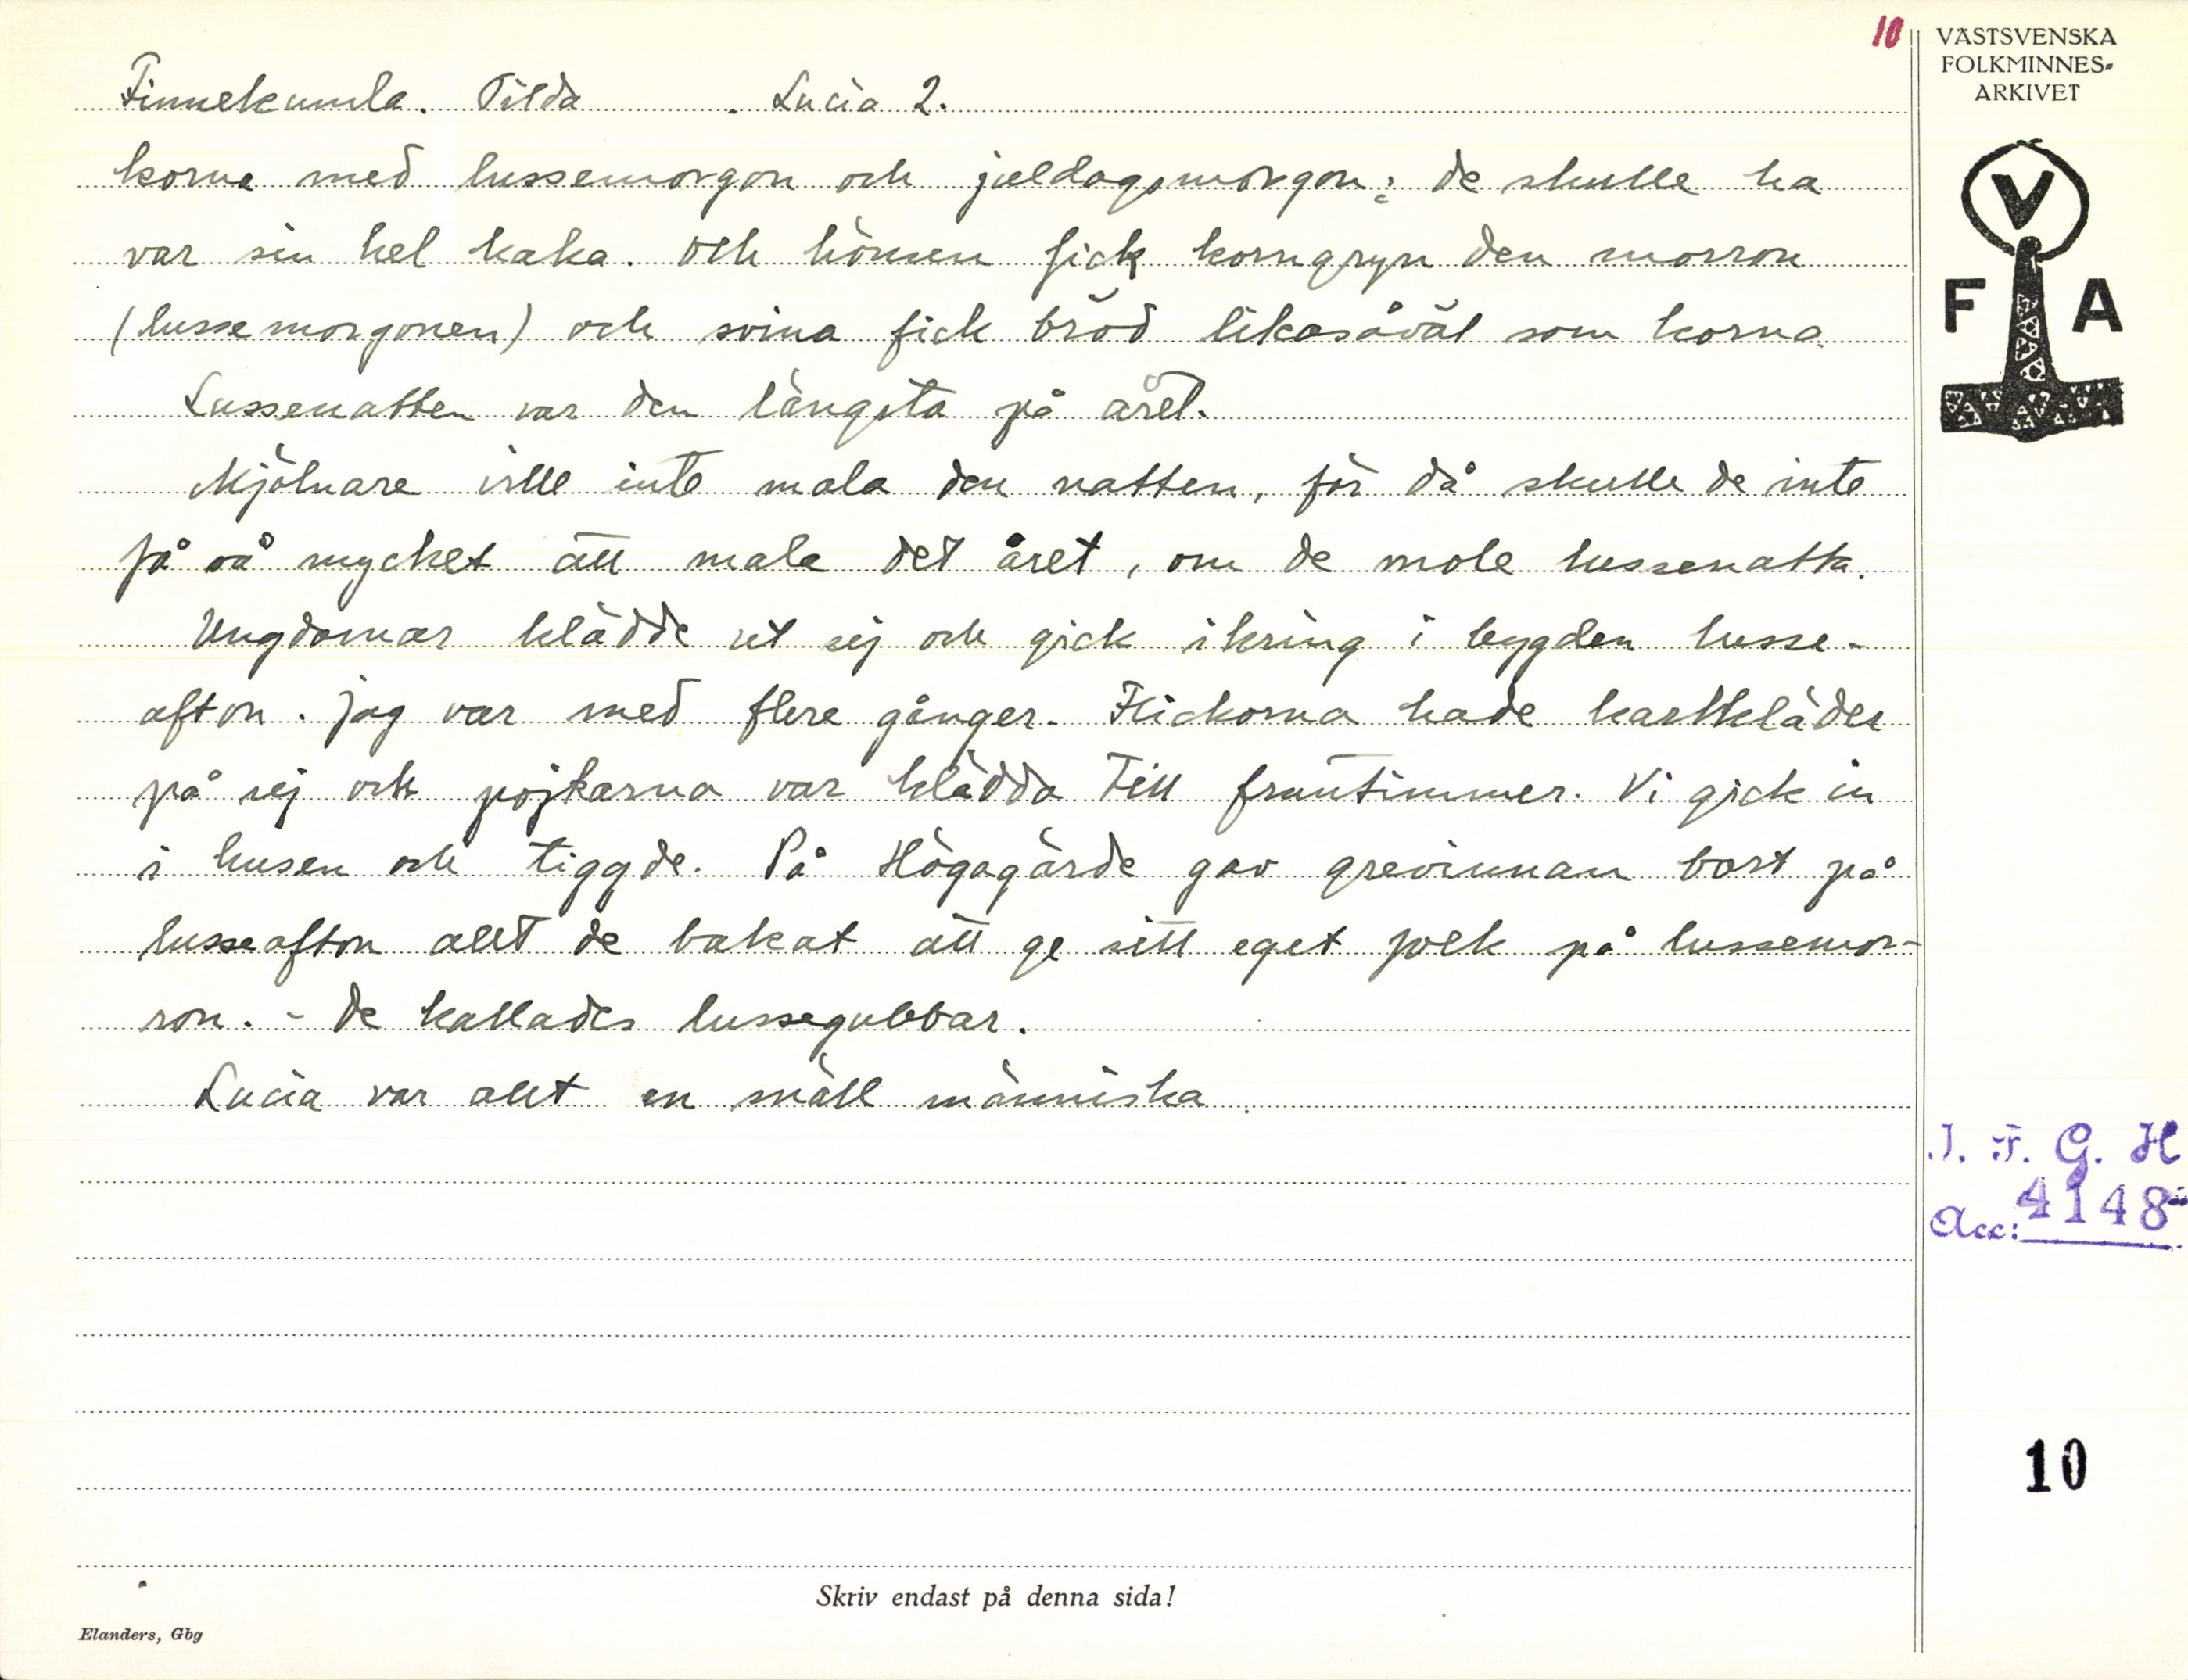 10
VÄSTSVENSKA
FOLKMINNES-
ARKIVET
Finnekumla. Tilda . Lucia 2.
korna med lussemorgon och juldagsmorgon; de skulle ha
var sin hel kaka. Och hönsen fick korngryn den morron
(lussemorgonen) och svina fick bröd likasåväl som korna.
Lussenatten var den längsta på året.
Mjölnare ville inte mala den natten, för då skulle de inte
få så mycket att mala det året, om de mole lussenatta.
Ungdomar klädde ut sej och gick ikring i bygden lusse-
afton. Jag var med flere gånger. Flickorna hade karlkläder
på sej och pojkarna var klädda till fruntimmer. Vi gick in
i husen och tiggde. På Högagärde gav grevinnan bort på
lusseafton allt de bakat att ge sitt eget folk på lussemor-
ron. - De kallades lussegubbar.
Lucia var allt en snäll människa.
V
F A
I. F. G. H
Acc: 4148
10
Skriv endast på denna sida!
Elanders, Gbg